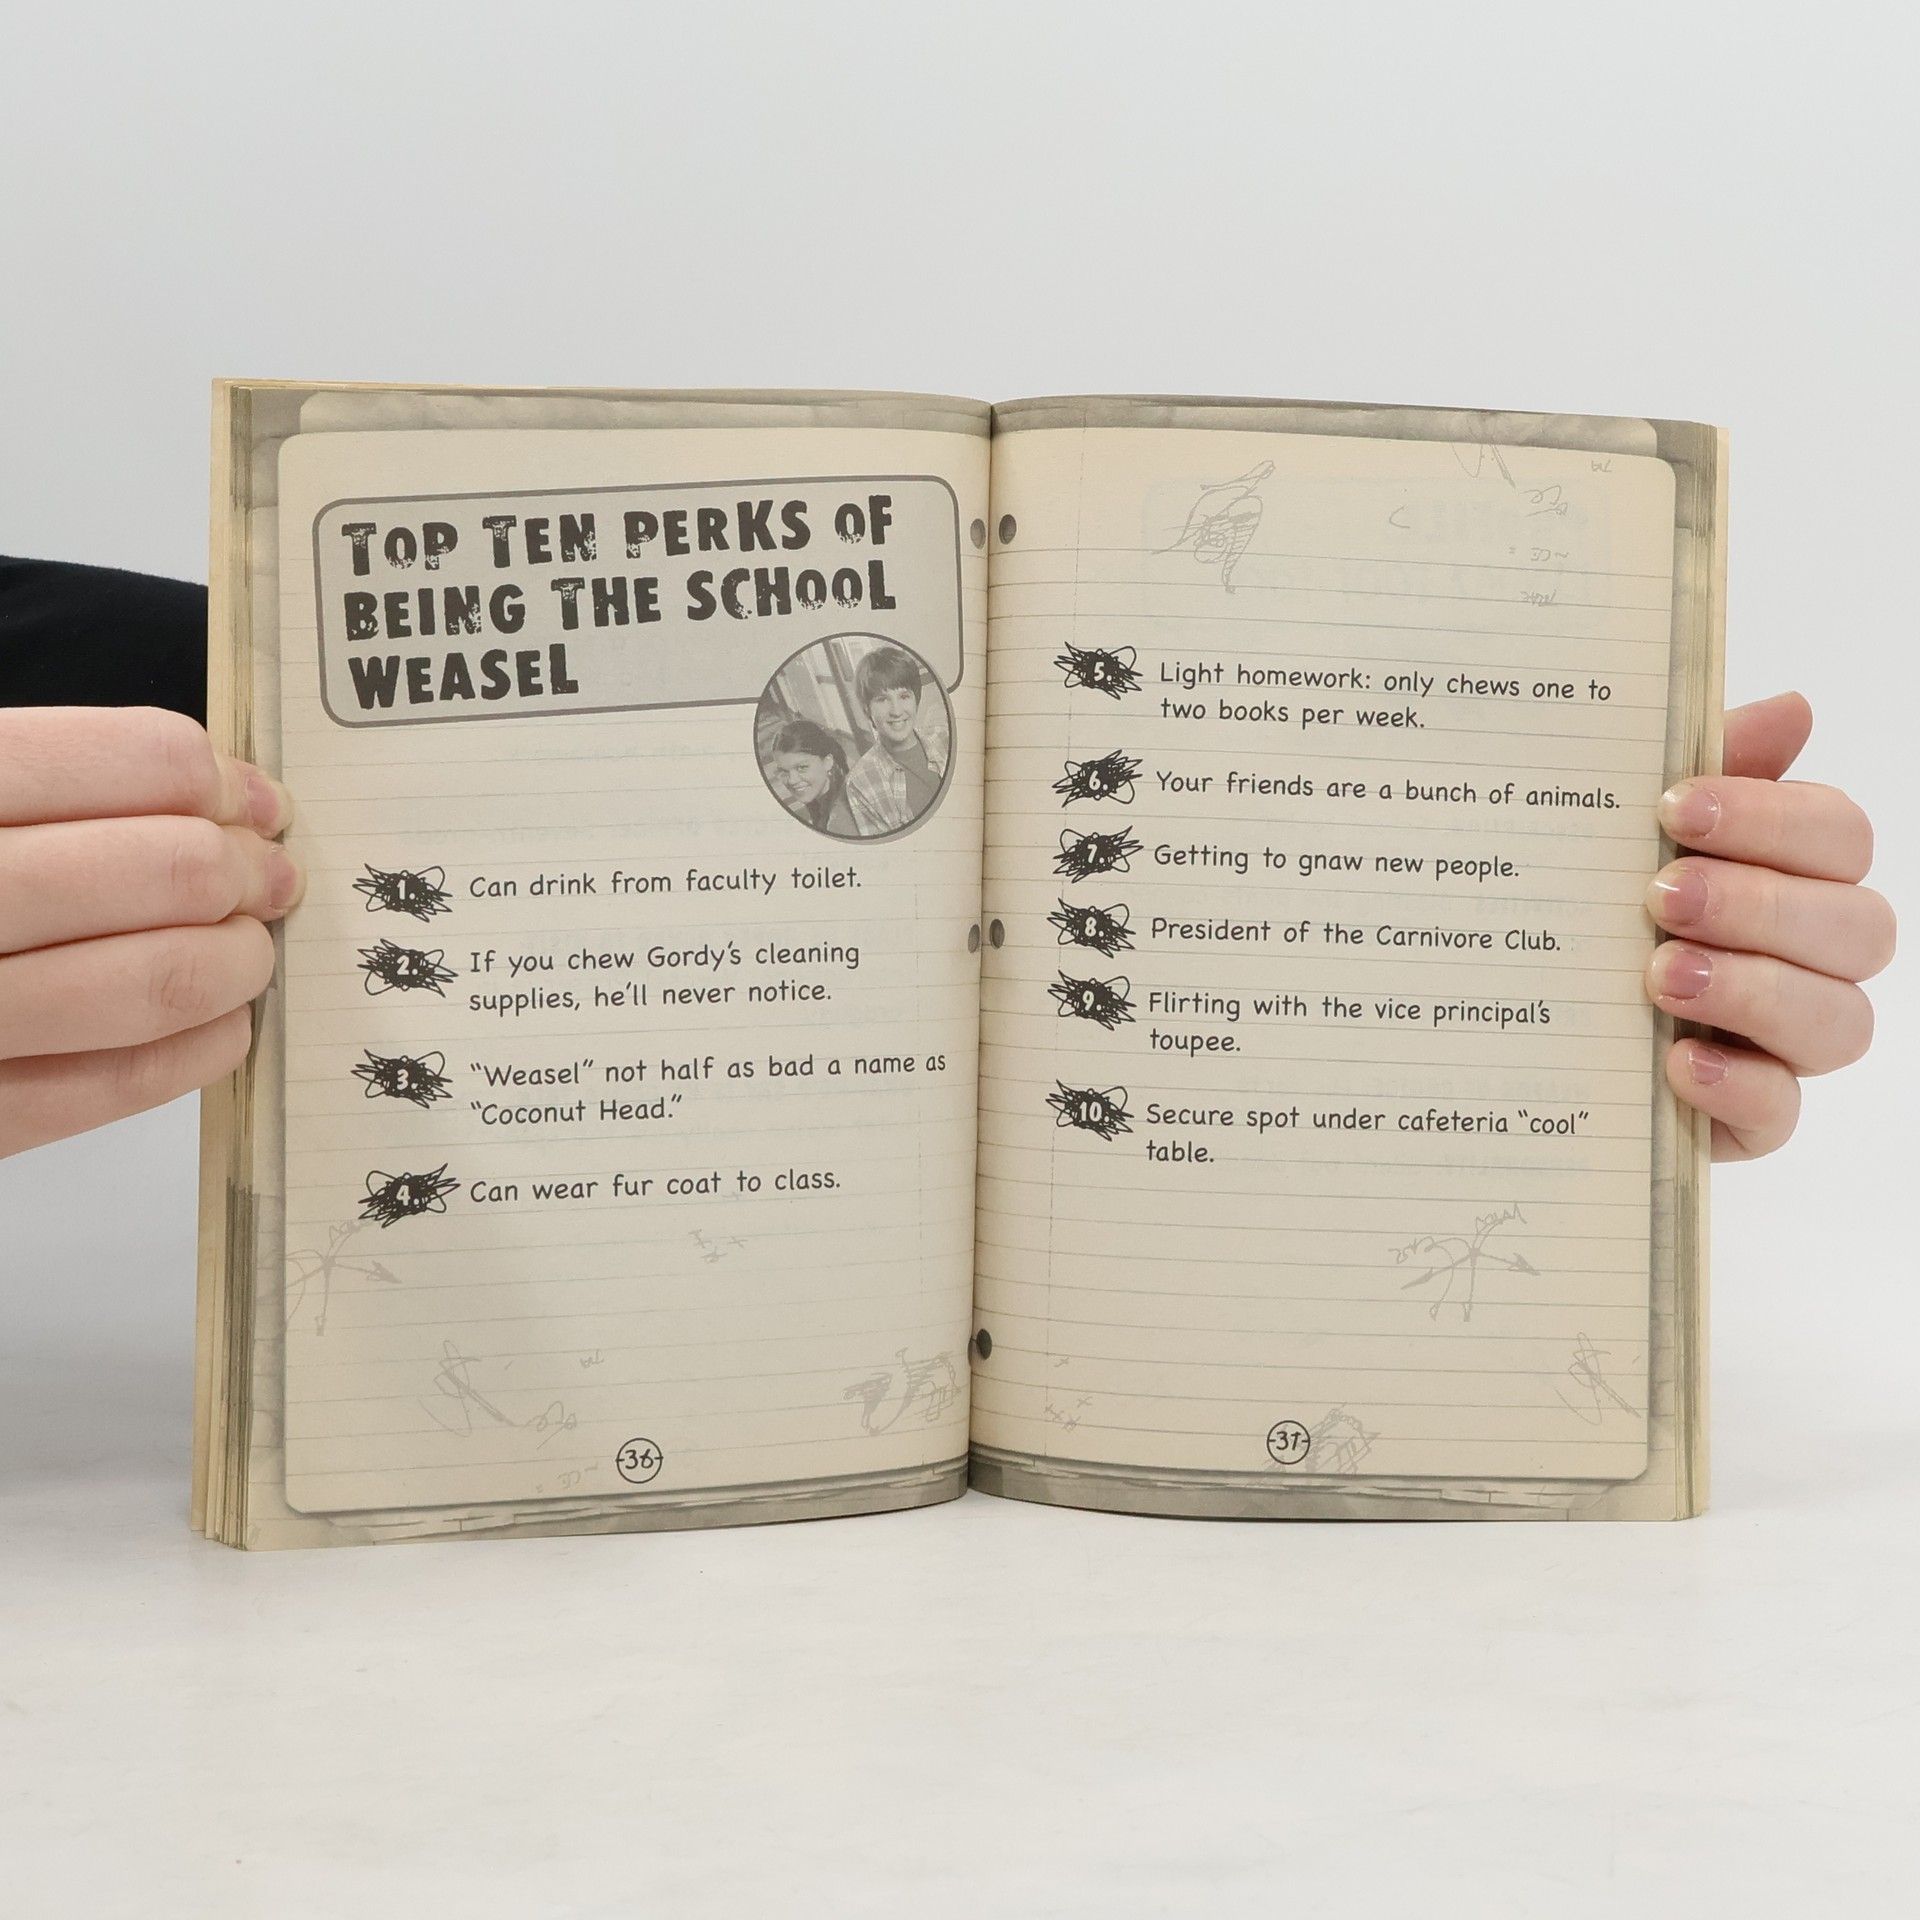 TOP TEN PERKS OF
BEING THE SCHOOL
WEASEL
1. Can drink from faculty toilet.
2. If you chew Gordy's cleaning
supplies, he'll never notice.
3. "Weasel" not half as bad a name as
"Coconut Head."
4. Can wear fur coat to class.
36
5. Light homework: only chews one to
two books per week.
6. Your friends are a bunch of animals.
7. Getting to gnaw new people.
8. President of the Carnivore Club.
9. Flirting with the vice principal's
toupee.
10. Secure spot under cafeteria "cool"
table.
37